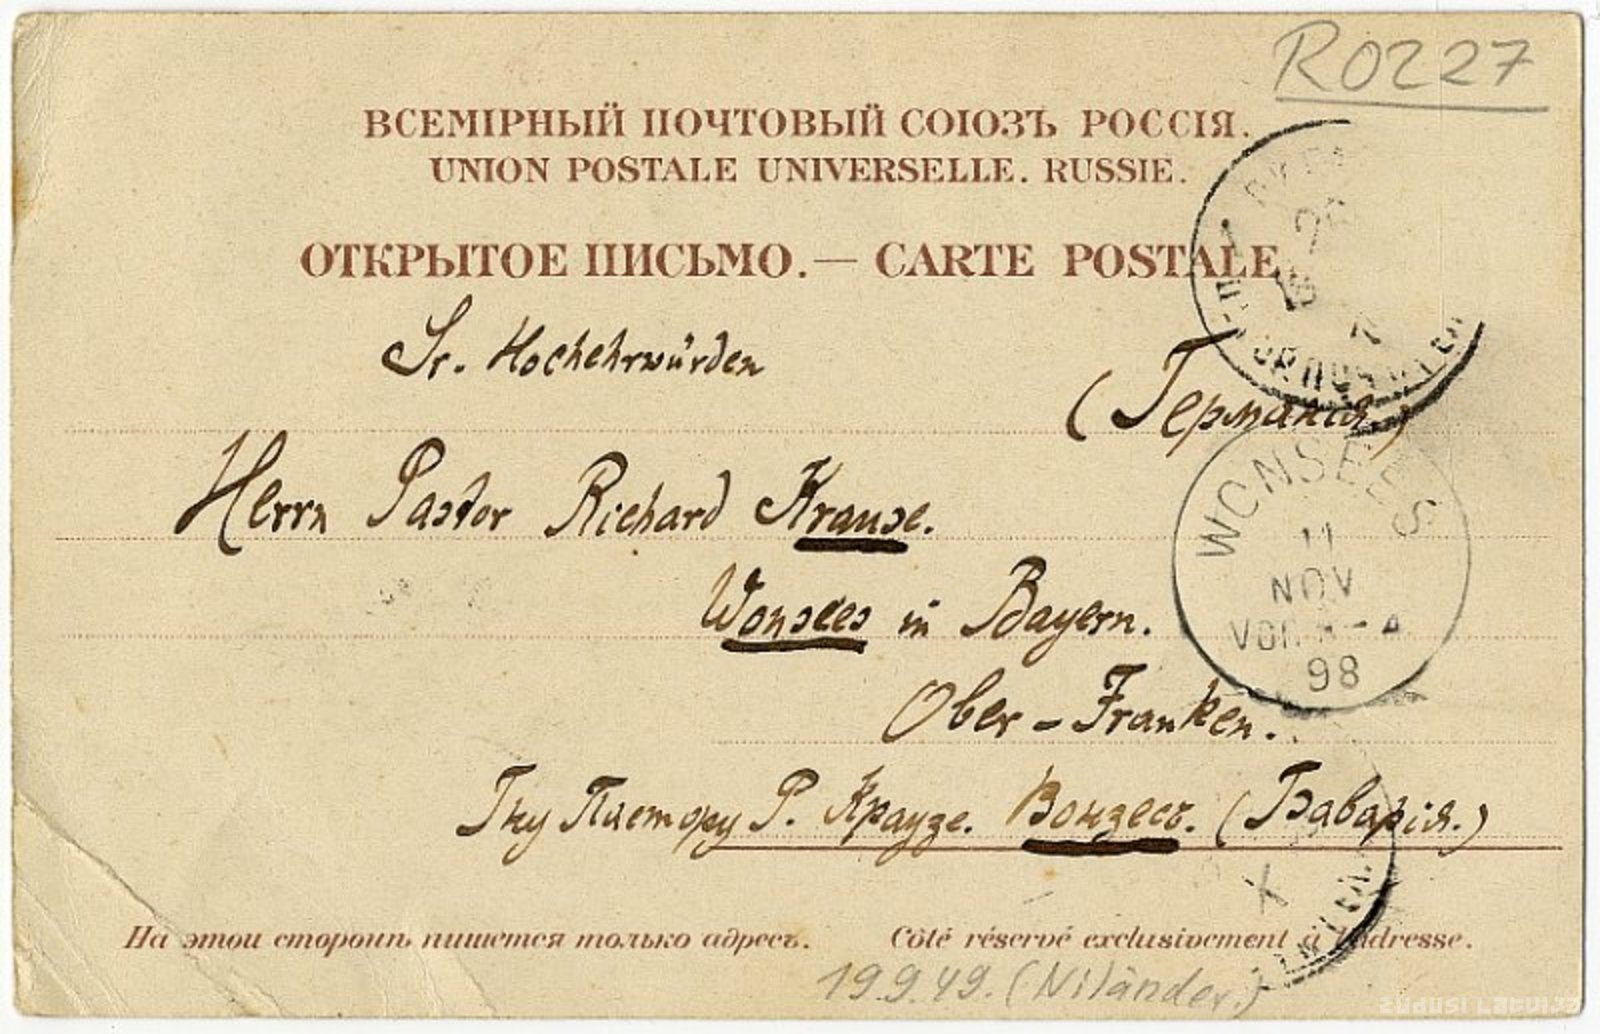 R0227
ВСЕМІРНЫЙ ПОЧТОВЫЙ СОЮЗЪ РОССІЯ.
UNION POSTALE UNIVERSELLE. RUSSIE.
ОТКРЫТОЕ ПИСЬМО.— CARTE POSTALE
Sr. Hochehrwürden
(Германія.)
Herrn Pastor Richard Krause.
WONSEES
11
NOV
VOR. 98
Wonsees in Bayern.
Ober-Franken.
Гну Пастору Р. Краузе. Вонзесъ. (Баварія.)
На этой сторонѣ пишется только адресъ.
Côté réservé exclusivement à l'adresse.
19.9.49. (Niländer.)
ZUDUSI LATVIJA